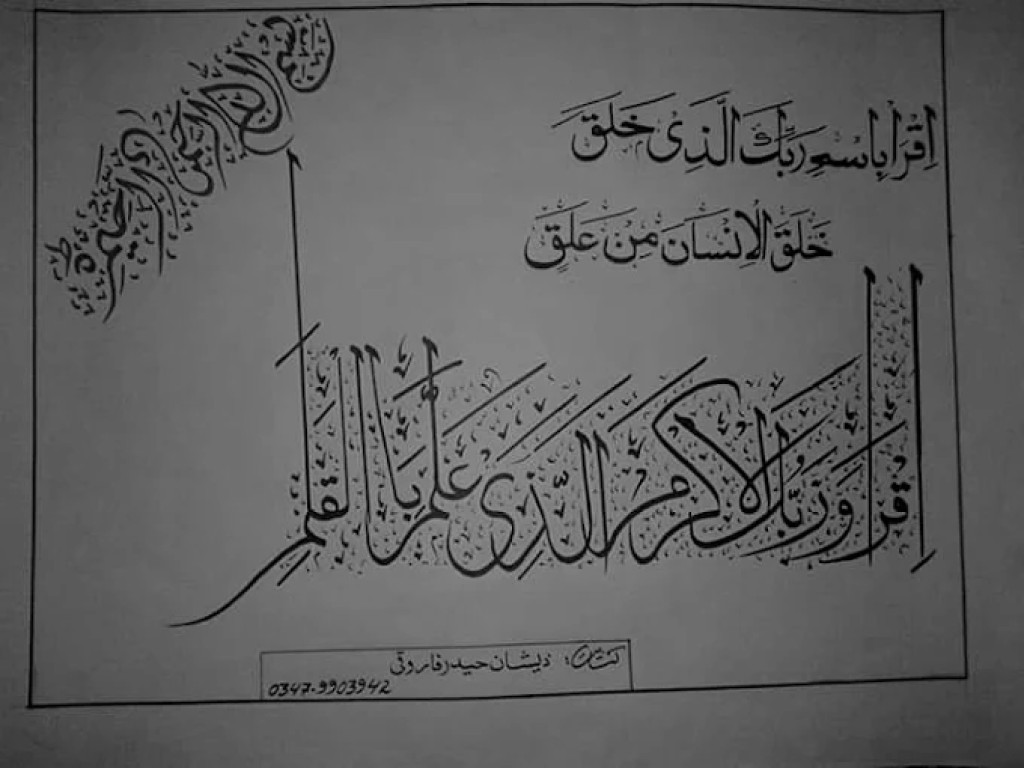 بسم الله الرحمن الرحيم
اِقْرَاْ بِاسْمِ رَبِّكَ الَّذِیْ خَلَقَ
خَلَقَ الْاِنْسَانَ مِنْ عَلَقٍ
اِقْرَاْ وَرَبُّكَ الْاَكْرَمُ الَّذِیْ عَلَّمَ بِالْقَلَمِ
ذیشان حیدر فاروقی
0347-9903942